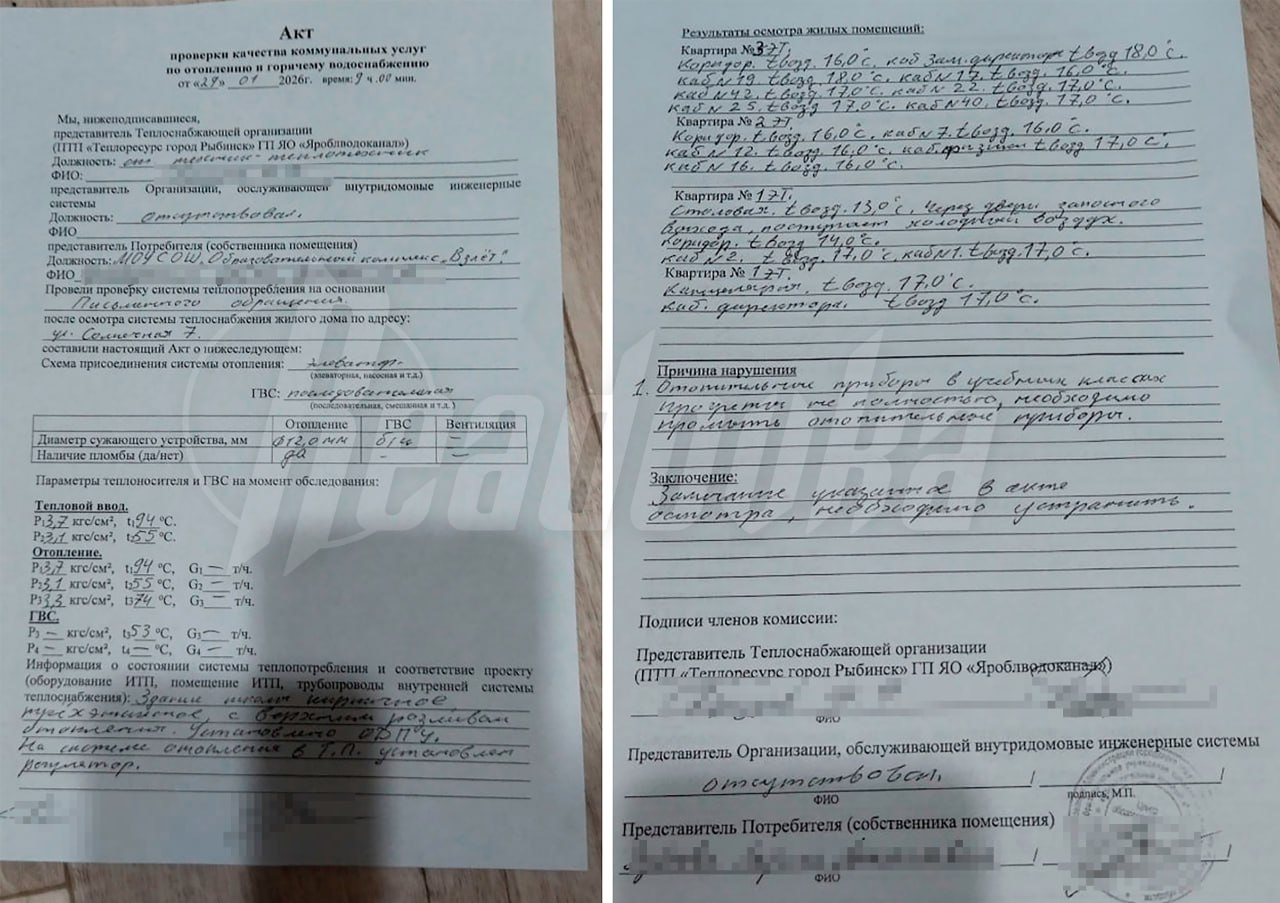 Акт
проверки качества коммунальных услуг
по отоплению и горячему водоснабжению
от «29» 01 2026г. время: 9 ч. 00 мин.
Мы, нижеподписавшиеся,
представитель Теплоснабжающей организации
(ПТП «Теплоресурс город Рыбинск» ГП ЯО «Яроблводоканал»)
Должность: ст техник-теплотехник
ФИО:
представитель Организации, обслуживающей внутридомовые инженерные
системы
Должность: отсутствовал.
ФИО
представитель Потребителя (собственника помещения)
Должность: МОУ СОШ, Образовательный комплекс „Взлёт".
ФИО
Провели проверку системы теплопотребления на основании
Письменного обращения.
после осмотра системы теплоснабжения жилого дома по адресу:
ул. Солнечная 7.
составили настоящий Акт о нижеследующем:
Схема присоединения системы отопления: элеватор.
(элеваторная, насосная и т.д.)
ГВС: последовательная
(последовательная, смешанная и т.д.)
Отопление ГВС Вентиляция
Диаметр сужающего устройства, мм ф12,0 мм б/ш –
Наличие пломбы (да/нет) да – –
Параметры теплоносителя и ГВС на момент обследования:
Тепловой ввод.
P1 3,7 кгс/см², t1 94 °С.
P2 3,1 кгс/см², t2 55 °С.
Отопление.
P1 3,7 кгс/см², t1 94 °С, G1 – т/ч.
P2 3,1 кгс/см², t2 55 °С, G2 – т/ч.
P3 3,3 кгс/см², t3 74 °С, G3 – т/ч.
ГВС.
P3 – кгс/см², t3 53 °С, G3 – т/ч.
P4 – кгс/см², t4 – °С, G4 – т/ч.
Информация о состоянии системы теплопотребления и соответствие проекту
(оборудование ИТП, помещение ИТП, трубопроводы внутренней системы
теплоснабжения): Здание школы кирпичное
трёхэтажное, с верхним розливом
отопления. Установлено ОДПУ.
На системе отопления в Т.П. установлен
регулятор.
Результаты осмотра жилых помещений:
Квартира № 3 эт.
Коридор. t возд. 16,0°с, каб Зам. директора t возд 18,0°с.
каб N 19. t возд 18,0°с. каб N 17. t возд. 16,0°с.
каб N 42. t возд. 17,0°с, каб N 22. t возд. 17,0°с.
каб N 25. t возд 17,0°с. каб N 40, t возд. 17,0°с.
Квартира № 2 эт.
Коридор. t возд. 16,0°с, каб N 7. t возд. 16,0°с.
каб N 12. t возд. 16,0°с, каб. физики t возд 17,0°с,
каб N 16. t возд. 16,0°с.
Квартира № 1 эт.
Столовая. t возд. 13,0°с, через двери запасного
выхода, поступает холодный воздух.
коридор. t возд 14,0°с.
каб N 2. t возд. 17,0°с, каб N 1. t возд. 17,0°с.
Квартира № 1 эт.
Канцелярия, t возд. 17,0°с.
каб. директора. t возд 17,0°с.
Причина нарушения
1. Отопительные приборы в учебных классах
прогреты не полностью, необходимо
промыть отопительные приборы.
Заключение:
Замечание указанное в акте
осмотра, необходимо устранить.
Подписи членов комиссии:
Представитель Теплоснабжающей организации
(ПТП «Теплоресурс город Рыбинск» ГП ЯО «Яроблводоканал»)
ФИО
Представитель Организации, обслуживающей внутридомовые инженерные системы
отсутствовал.
ФИО
подпись, М.П.
Представитель Потребителя (собственника помещения)
ФИО
Readовка